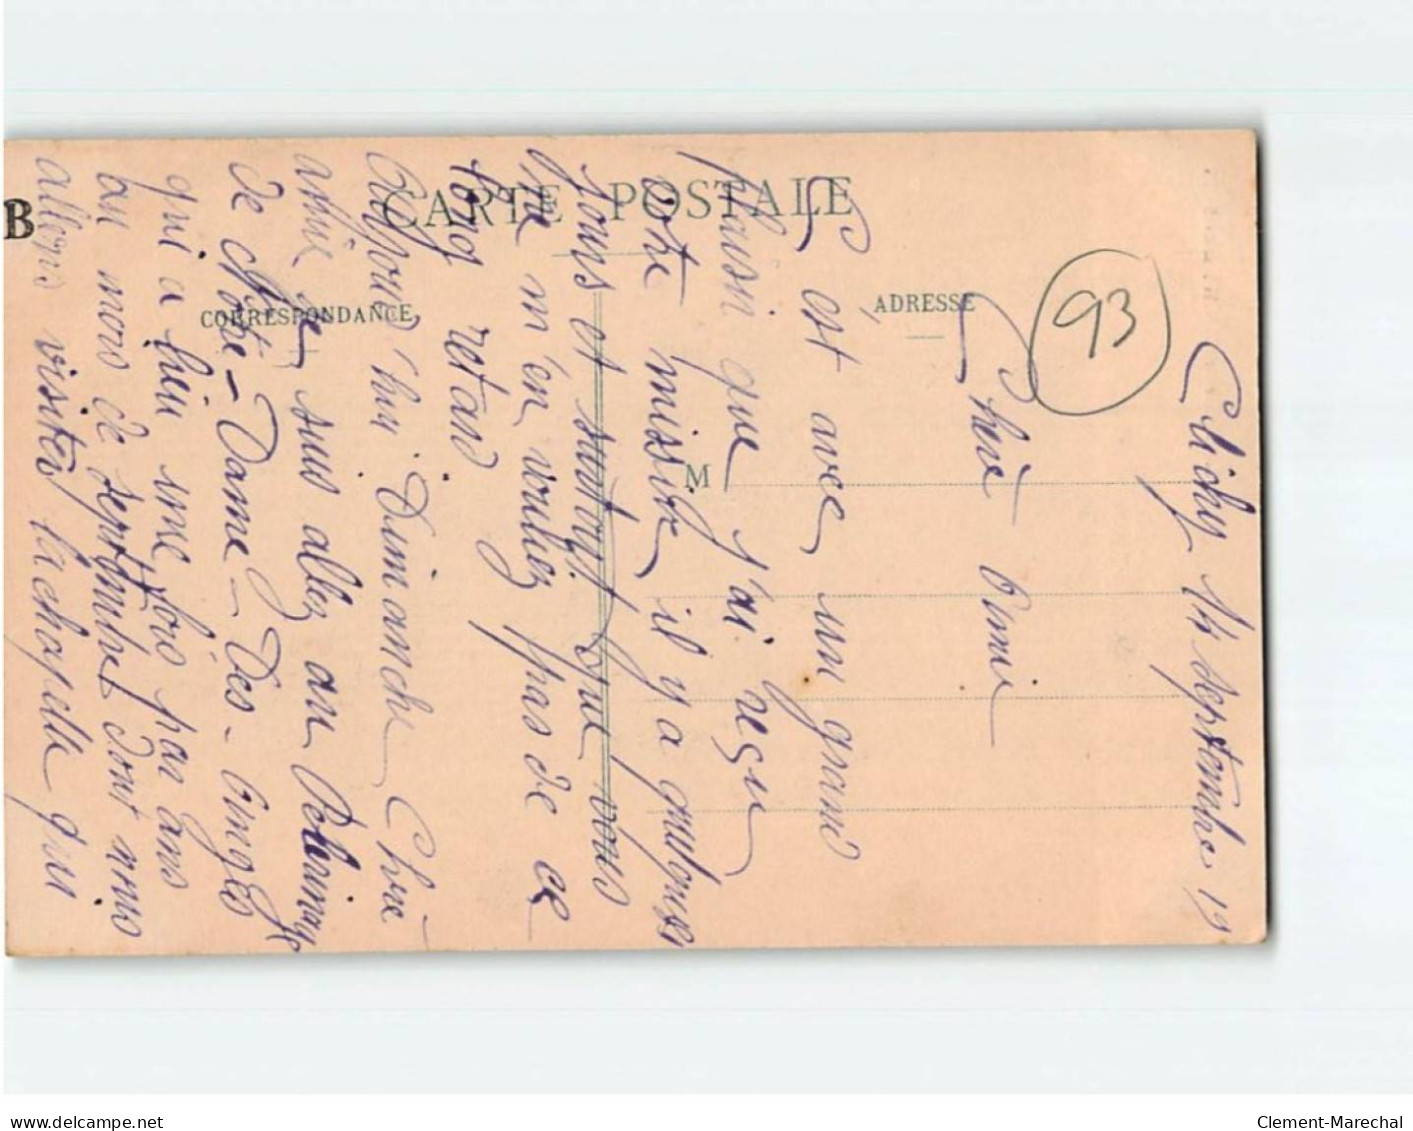 B
CARTE POSTALE
CORRESPONDANCE
ADRESSE
M
93
Clichy 14 septembre 19
Chère Amie
C'est avec un grand
plaisir que j'ai reçu
votre missive il y a quelques
jours et surtout que vous
ne m'en vouliez pas de ce
long retard
Aujourd'hui Dimanche Chère
amie je suis allez au Pelerinage
de Notre-Dame-Des-Anges
qui a lieu une fois par ans
au mois de septembre dont nous
allons visiter la chapelle qui
delcampe.net
Clement-Marechal